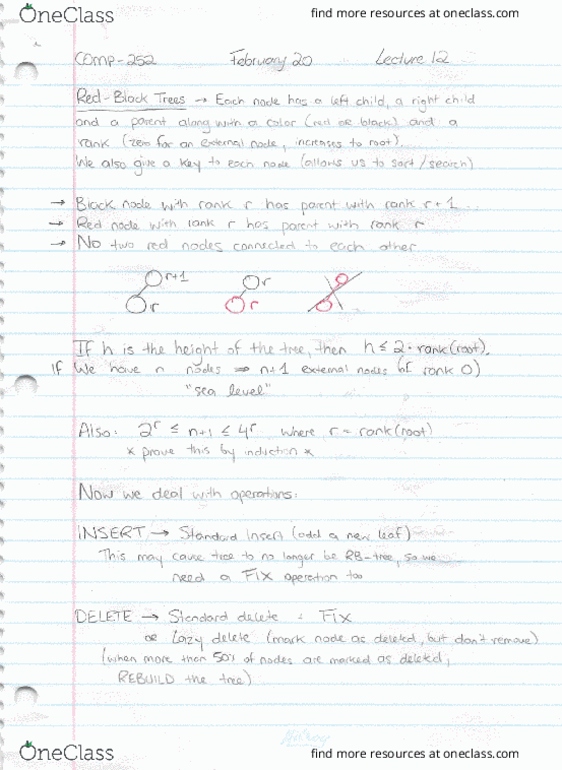 OneClass
find more resources at oneclass.com
COMP-252 February 20 Lecture 12
Red-Black Trees → Each node has a left child, a right child
and a parent along with a color (red or black) and a
rank (zero for an external node, increases to root).
We also give a key to each node (allows us to sort/search)
→ Black node with rank r has parent with rank r+1...
→ Red node with rank r has parent with rank r
→ No two red nodes connected to each other
r+1 r
r r
If h is the height of the tree, then h ≤ 2·rank(root).
If We have n nodes ⇒ n+1 external nodes (of rank 0)
"sea level"
Also: 2^r ≤ n+1 ≤ 4^r where r = rank(root)
* prove this by induction *
Now we deal with operations:
INSERT → Standard insert (add a new leaf)
This may cause tree to no longer be RB-tree, so we
need a FIX operation too
DELETE → Standard delete + FIX
or Lazy delete (mark node as deleted, but don't remove)
(when more than 50% of nodes are marked as deleted,
REBUILD the tree)
OneClass
find more resources at oneclass.com